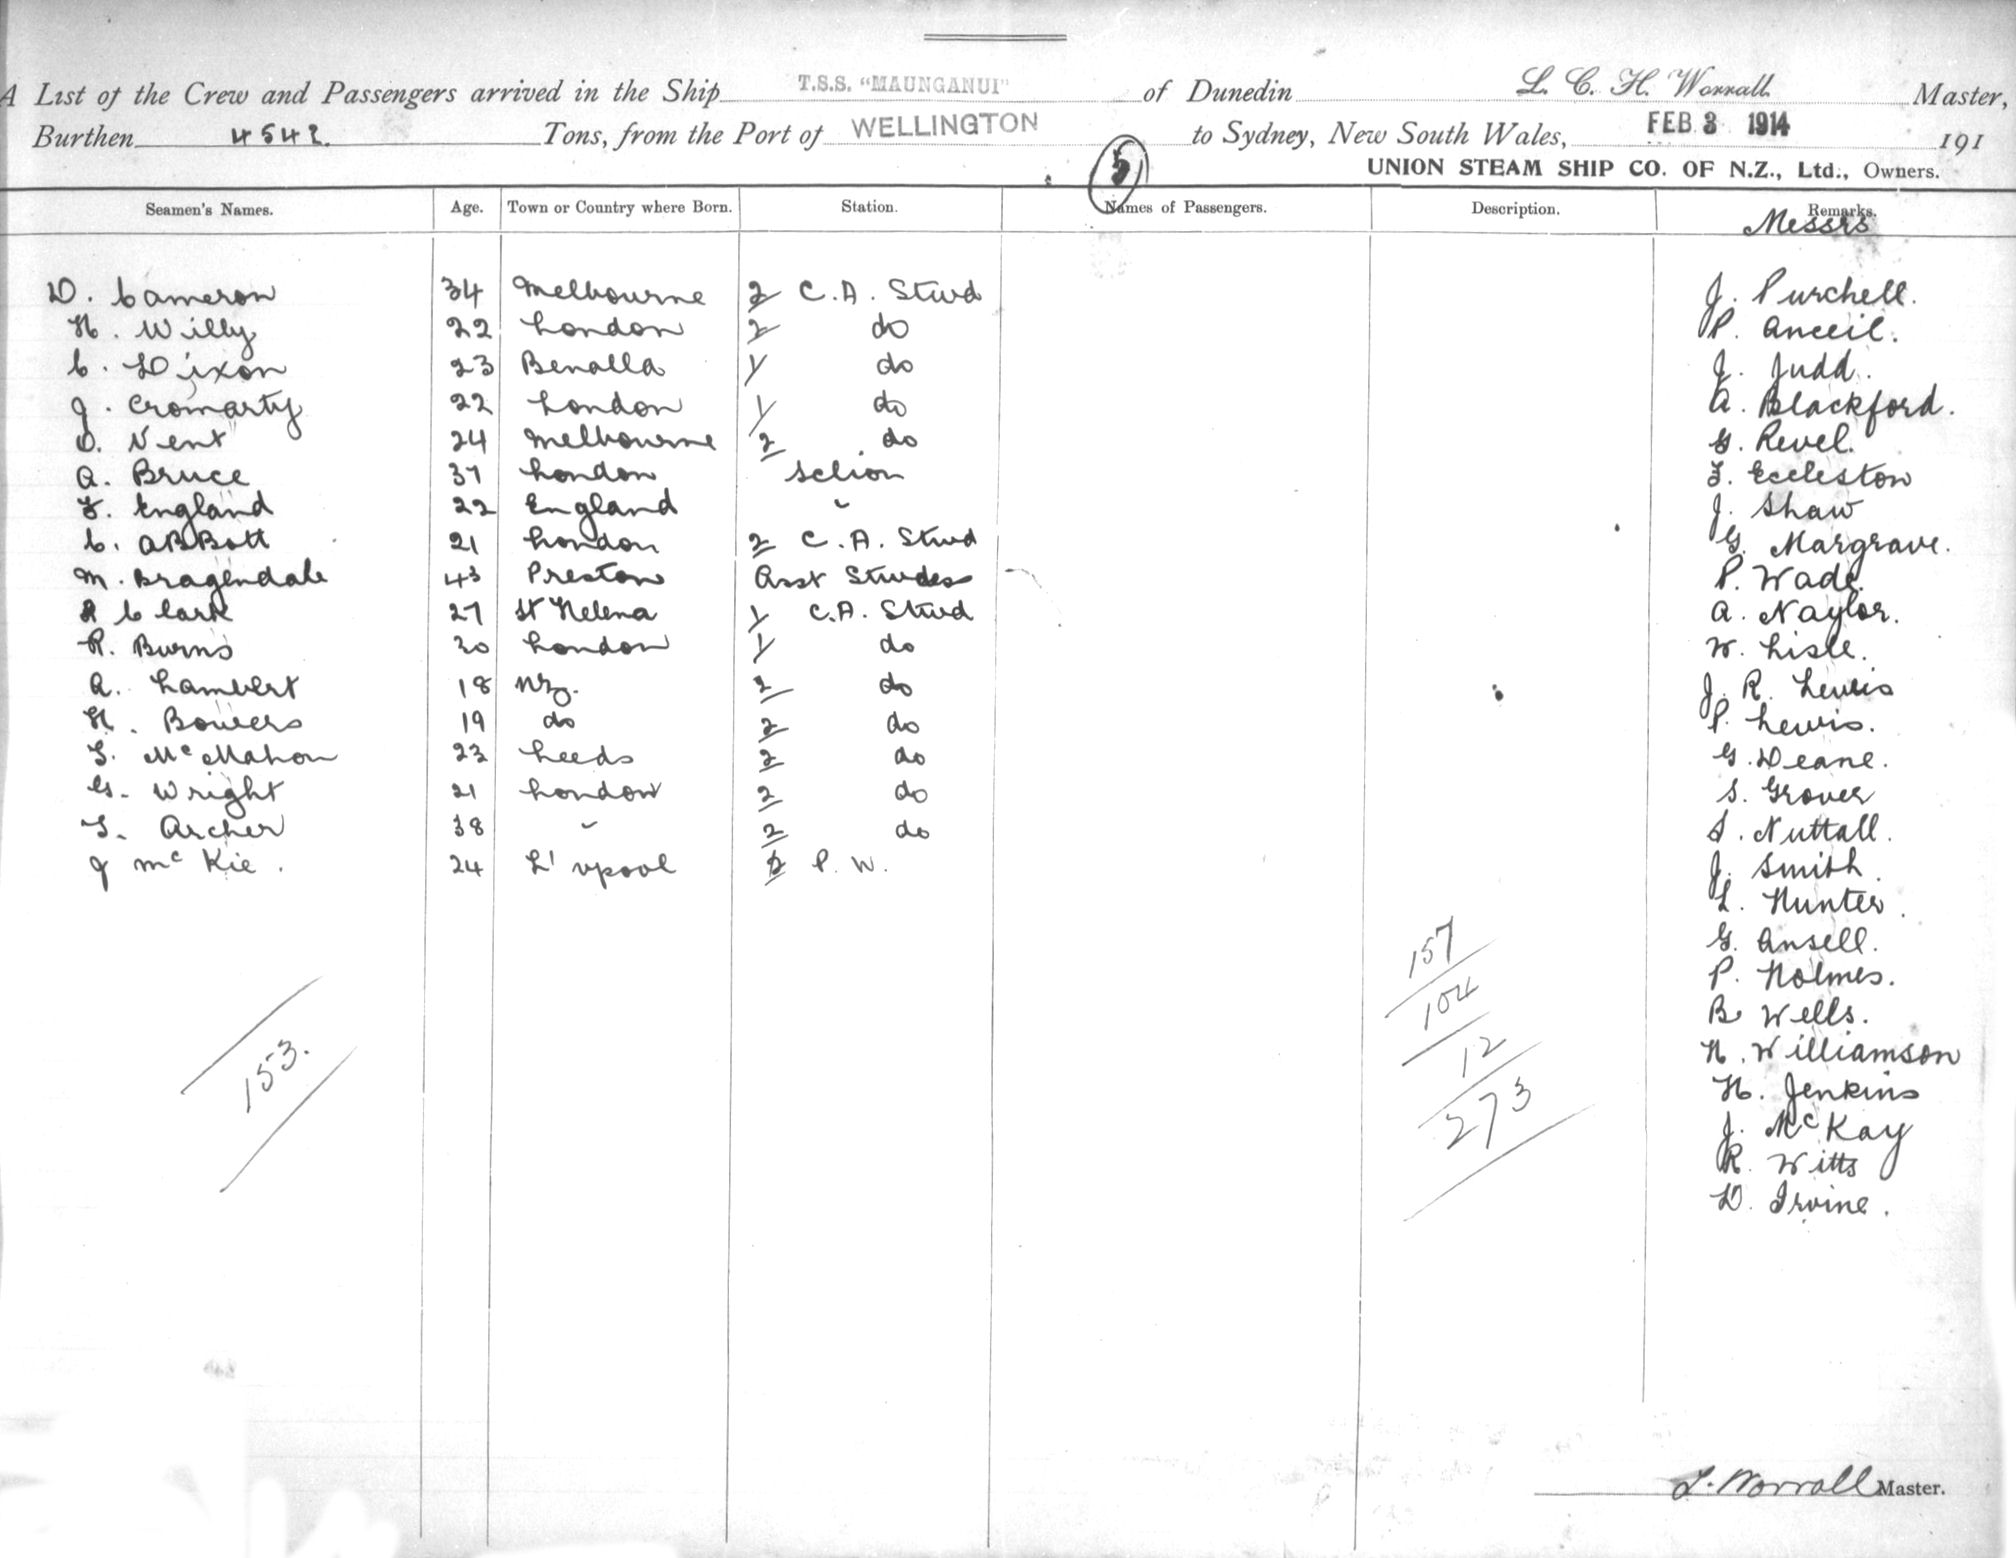 A List of the Crew and Passengers arrived in the Ship T.S.S. "MAUNGANUI" of Dunedin L. C. H. Worrall Master,
Burthen 4542. Tons, from the Port of WELLINGTON to Sydney, New South Wales, FEB 3 1914 191
5
UNION STEAM SHIP CO. OF N.Z., Ltd., Owners.
Seamen's Names. Age. Town or Country where Born. Station. Names of Passengers. Description. Remarks.
Messrs
D. Cameron 34 Melbourne 2 C.A. Stwd J. Purchell.
H. Willy 22 London 2 do P. Anceil.
C. Dixon 23 Benalla 1/ do J. Judd.
J. Cromarty 22 London 1/ do A. Blackford.
D. Vent 24 Melbourne 2 do G. Revel.
A. Bruce 37 London F. Eccleston
F. England 22 England " J. Shaw
C. ABBott 21 London 2 C.A. Stwd G. Margrave.
M. Bragendale 43 Preston Asst Stwdess P. Wade.
R Clark 27 St Helena 1/ C.A. Stwd A. Naylor.
R. Burns 30 London 1/ do W. Lisle.
A. Lambert 18 NZ. 2/ do J. R. Lewis
H. Bowers 19 do 2 do P. Lewis.
S. McMahon 23 Leeds 2 do G. Deane.
G. Wright 21 London 2 do S. Grover
S. Archer 38 " 2 do S. Nuttall.
J McKie. 24 L'vpool 2 P.W. J. Smith
L. Hunter.
G. Ansell.
P. Holmes.
B. Wells.
H. Williamson
H. Jenkins
J. McKay
R. Witts
D. Irvine.
153.
157
104
12
273
L. Worrall Master.